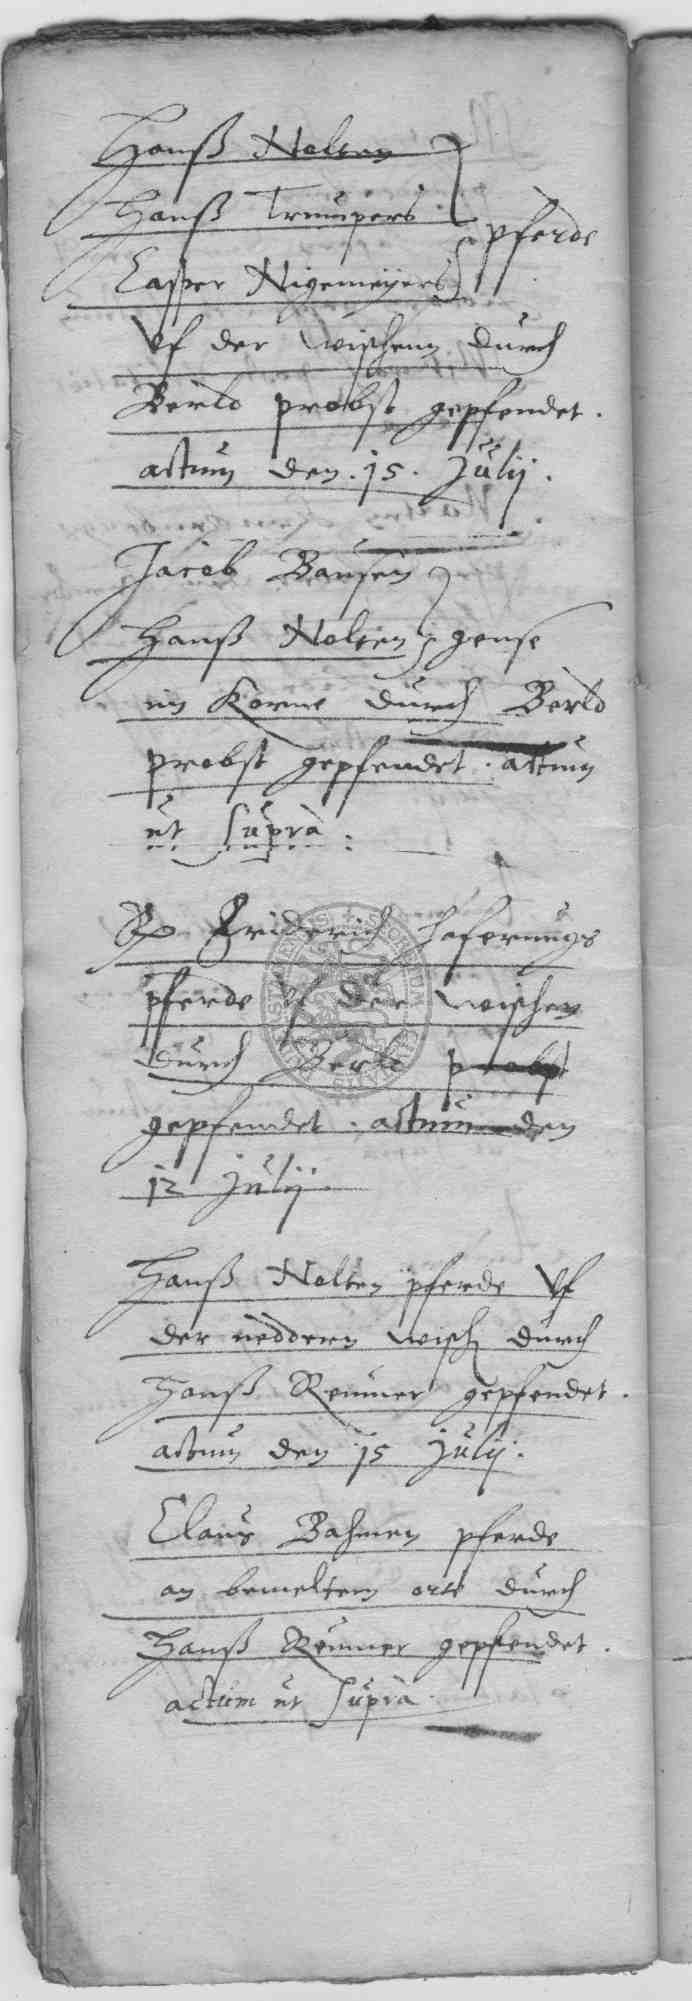 Hanß Nolten
Hanß Trumpers
Casper Nigemeyers
pferde
Vf der wischenn durch
Berld probst gepfendet.
actum den. 15. Julij.
Jacob Bansen
Hanß Nolten gense
im Korne durch Berld
probst gepfendet. actum
ut supra.
Friderich
pferde vf der wischen
durch Berld probst
gepfendet. actum den
12 Julij.
Hanß Nolten pferde Vf
der neddern wisch durch
Hanß Remmer gepfendet.
actum den 15 Julij.
Claus Bahmen pferde
an bemeltem orte durch
Hanß Remmer gepfendet.
actum ut supra.